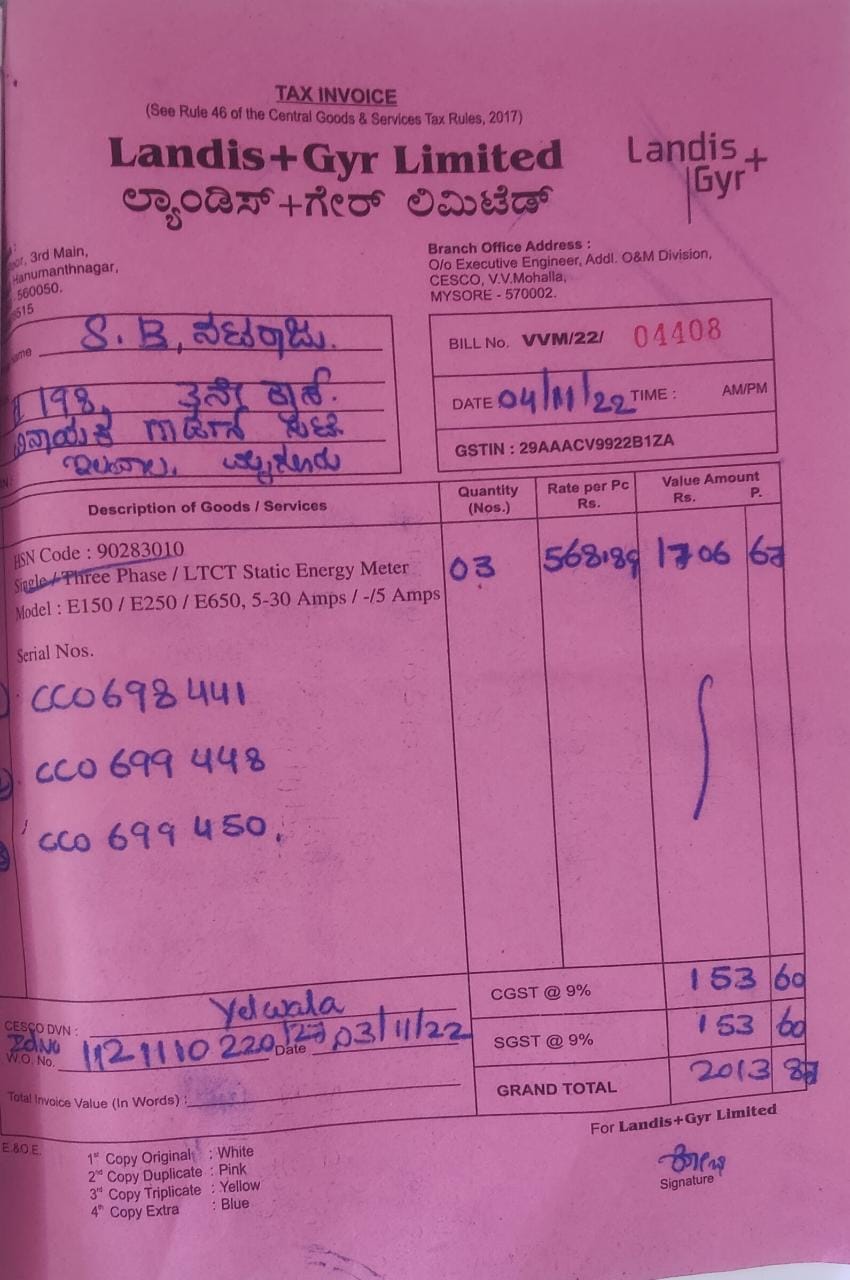 TAX INVOICE
(See Rule 46 of the Central Goods & Services Tax Rules, 2017)
Landis+Gyr Limited
ಲ್ಯಾಂಡಿಸ್+ಗೇರ್ ಲಿಮಿಟೆಡ್
Landis+
Gyr+
3rd Main,
Hanumanthnagar,
560050.
515
Branch Office Address :
O/o Executive Engineer, Addl. O&M Division,
CESCO, V.V.Mohalla,
MYSORE - 570002.
S. B, ನಟರಾಜು.
# 198, 3ನೇ ಕ್ರಾಸ್.
ವಿನಾಯಕ
ಇಲವಾಲ, ಮೈಸೂರು
BILL No. VVM/22/ 04408
DATE 04/11/22 TIME : AM/PM
GSTIN : 29AAACV9922B1ZA
Description of Goods / Services
Quantity (Nos.)
Rate per Pc Rs.
Value Amount
Rs. P.
HSN Code : 90283010
Single / Three Phase / LTCT Static Energy Meter
Model : E150 / E250 / E650, 5-30 Amps / -/5 Amps
03 568.89 1706 67
Serial Nos.
CCO 698 441
CCO 699 448
CCO 699 450.
CGST @ 9% 153 60
SGST @ 9% 153 60
GRAND TOTAL 2013 87
Yelwala
CESCO DVN :
W.O. No. 1121110220 Date 03/11/22
Total Invoice Value (In Words) :
E.&O.E.
1st Copy Original : White
2nd Copy Duplicate : Pink
3rd Copy Triplicate : Yellow
4th Copy Extra : Blue
For Landis+Gyr Limited
Signature